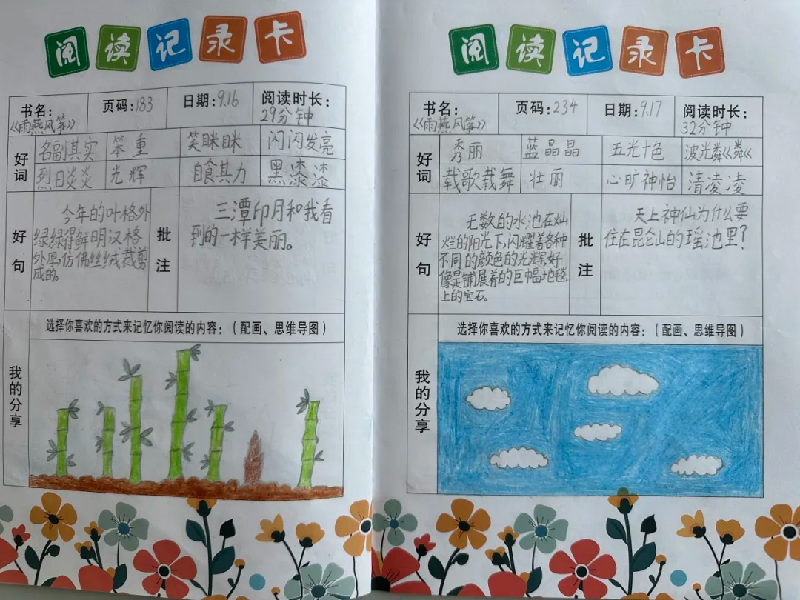 阅读记录卡
书名：《雨燕风筝》
页码：183
日期：9.16
阅读时长：29分钟
好词
名副其实 笨重 笑眯眯 闪闪发亮
烈日炎炎 光辉 自食其力 黑漆漆
好句
今年的叶格外
绿绿得鲜明汉格
外厚，仿佛丝绒裁剪
成的。
批注
三潭印月和我看
到的一样美丽。
选择你喜欢的方式来记忆你阅读的内容：（配画、思维导图）
我的分享
阅读记录卡
书名：《雨燕风筝》
页码：234
日期：9.17
阅读时长：32分钟
好词
秀丽 蓝晶晶 五光十色 波光粼粼
载歌载舞 壮丽 心旷神怡 清凌凌
好句
无数的水池在灿
烂的阳光下，闪耀着各种
不同的颜色的光辉，好
像是铺展着的巨幅地毯
上的宝石。
批注
天上神仙为什么要
住在昆仑山的瑶池里？
选择你喜欢的方式来记忆你阅读的内容：（配画、思维导图）
我的分享